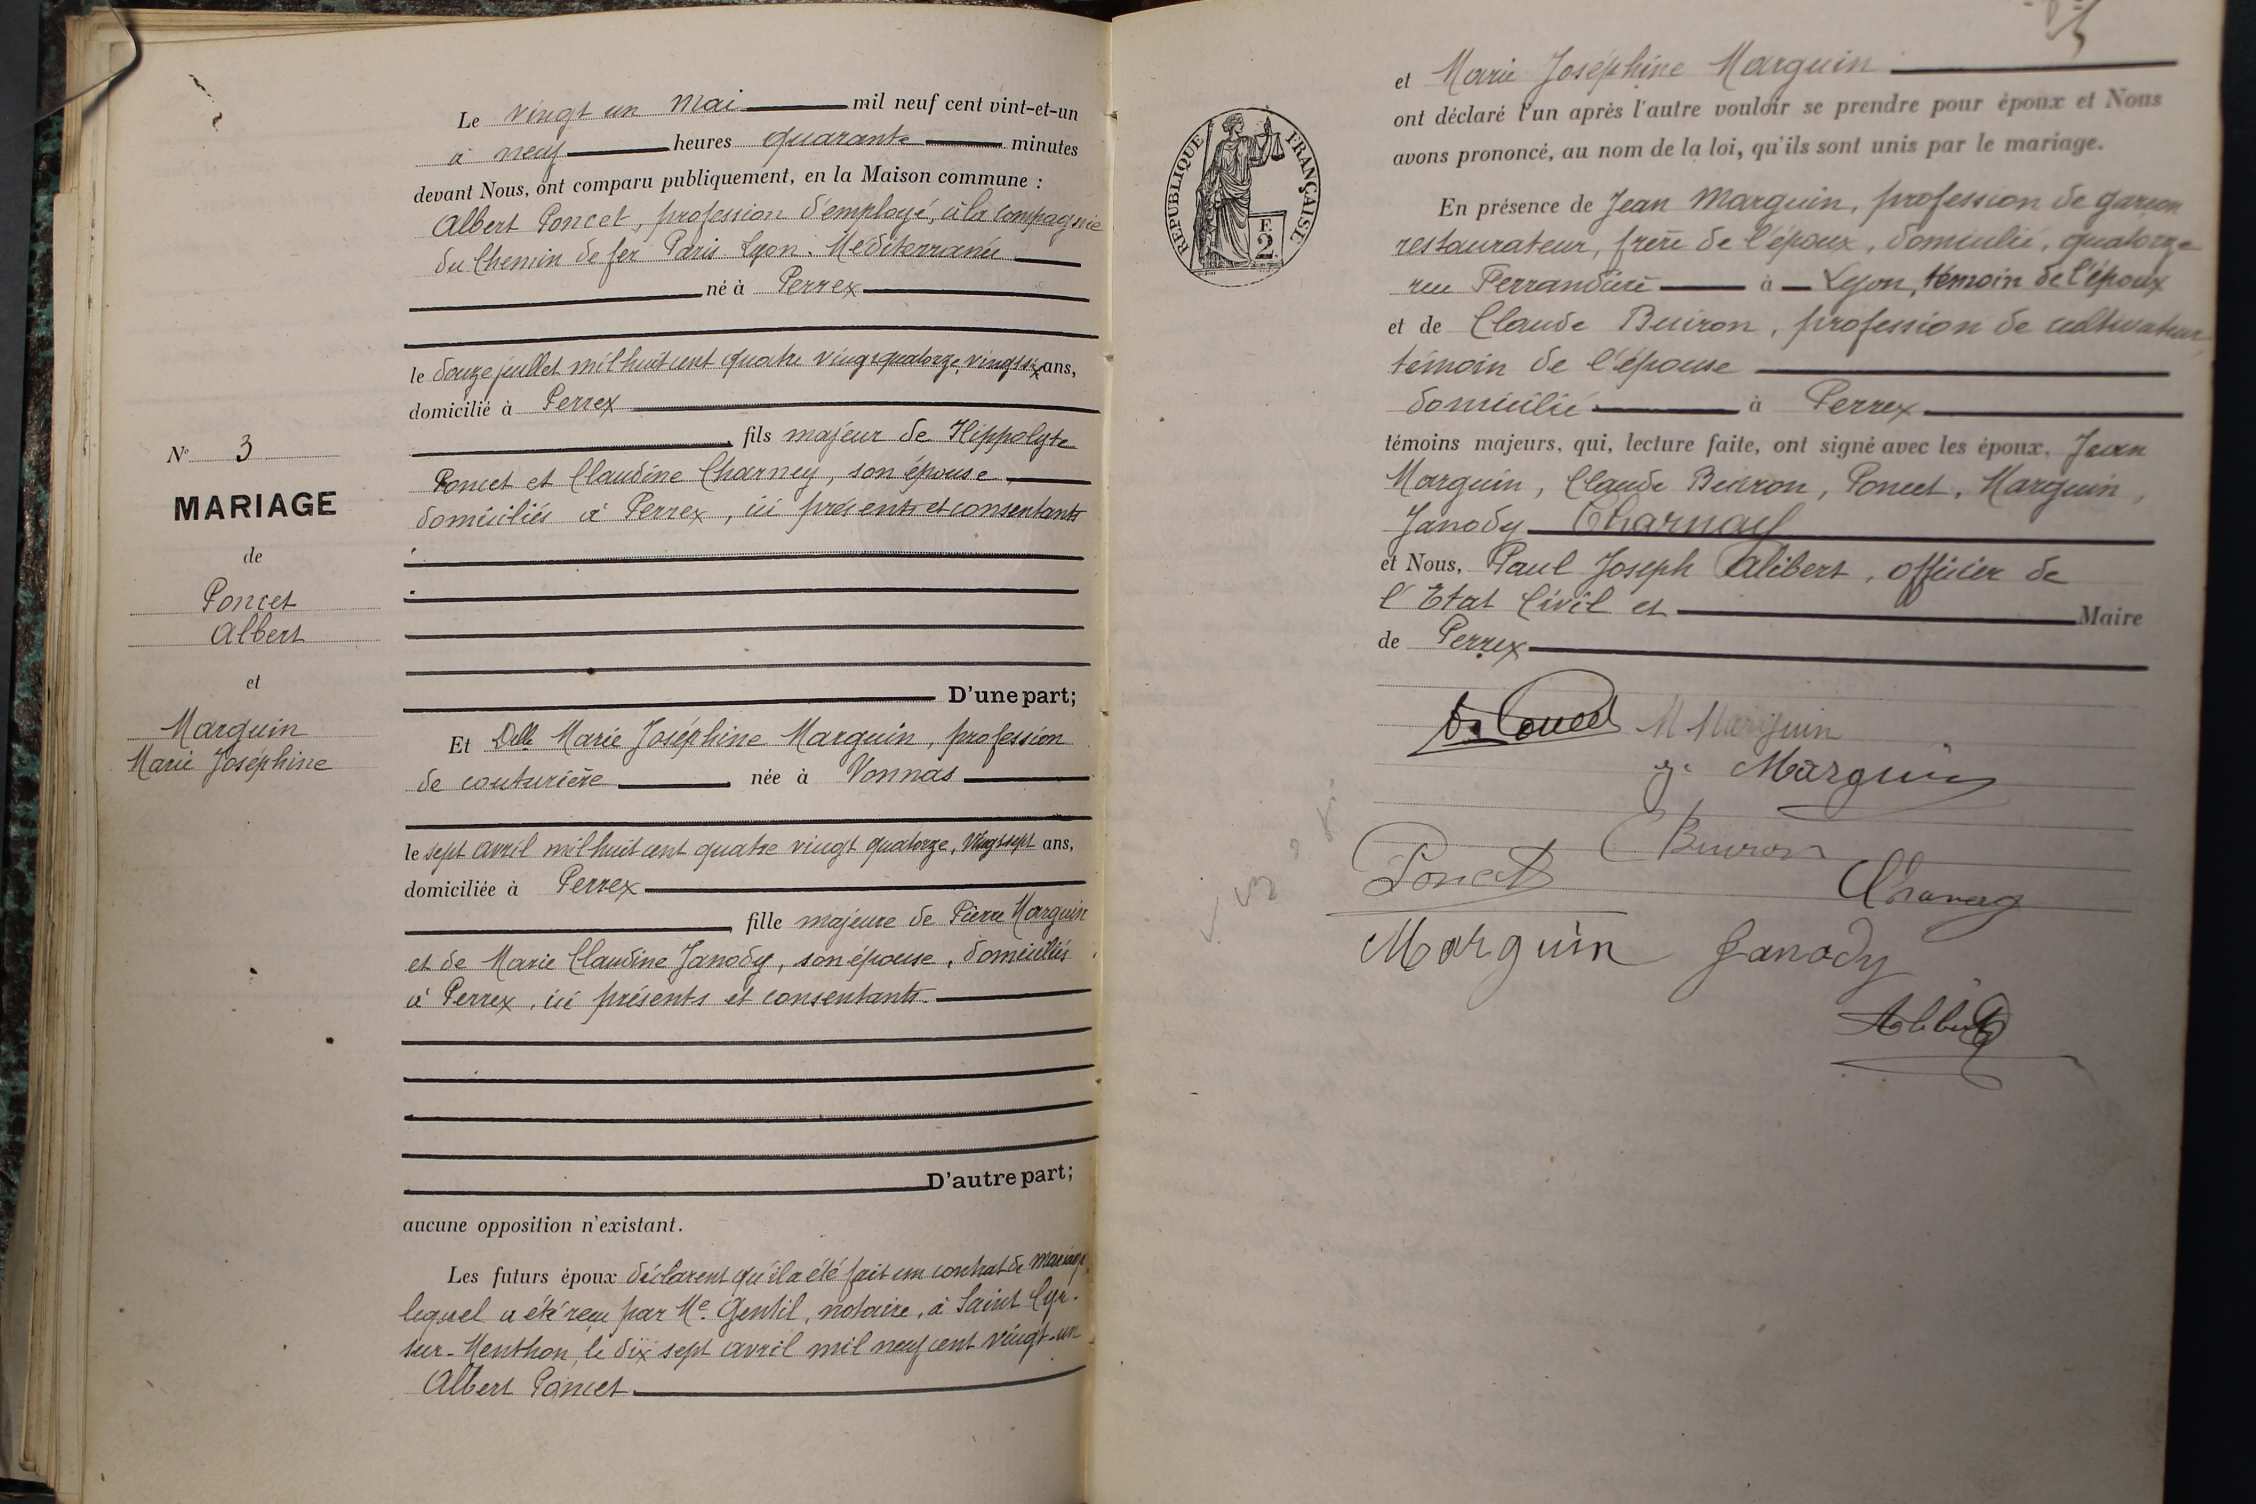 Le vingt un Mai mil neuf cent vint-et-un
à neuf heures quarante minutes
devant Nous, ont comparu publiquement, en la Maison commune :
Albert Poncet, profession d'employé, à la Compagnie
du Chemin de fer Paris. Lyon. Méditerranée
né à Perrex
le douze juillet mil huit cent quatre vingt quatorze, vingt six ans,
domicilié à Perrex
fils majeur de Hippolyte
Poncet et Claudine Charney, son épouse,
domiciliés à Perrex, ici présents et consentants
D'une part;
Nº 3
MARIAGE
de
Poncet
Albert
et
Marguin
Marie Joséphine
Et Delle Marie Joséphine Marguin, profession
de couturière née à Vonnas
le sept avril mil huit cent quatre vingt quatorze, vingt sept ans,
domiciliée à Perrex
fille majeure de Pierre Marguin
et de Marie Claudine Janody, son épouse, domiciliés
à Perrex, ici présents et consentants
D'autre part;
aucune opposition n'existant.
Les futurs époux déclarent qu'il a été fait un contrat de mariage
lequel a été reçu par Me. Gentil, notaire, à Saint Cyr-
sur-Menthon, le dix sept avril mil neuf cent vingt-un
Albert Poncet
RÉPUBLIQUE FRANÇAISE
F.
2
et Marie Joséphine Marguin
ont déclaré l'un après l'autre vouloir se prendre pour époux et Nous
avons prononcé, au nom de la loi, qu'ils sont unis par le mariage.
En présence de Jean Marguin, profession de garçon
restaurateur, frère de l'époux, domicilié, quatorze
rue Ferrandière à Lyon, témoin de l'époux
et de Claude Buiron, profession de cultivateur,
témoin de l'épouse
domicilié à Perrex
témoins majeurs, qui, lecture faite, ont signé avec les époux, Jean
Marguin, Claude Buiron, Poncet, Marguin,
Janody Charnay
et Nous, Paul Joseph Alibert, officier de
l'Etat Civil et Maire
de Perrex
Poncet M Marguin
Marguin
C Buiron
Poncet
Marguin Janody
Alibert